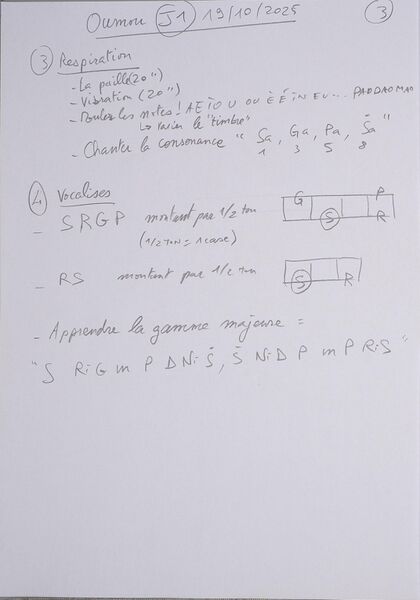 Oumou J1 19/10/2025 3
3 Respiration
- La paille (20")
- Vibration (20")
- Toutes les notes ! A E I O U OU È É IN EU... PAO DAO MAO
↳ varier le "timbre"
- Chanter la consonance " Sa, Ga, Pa, Ṡa "
1 3 5 8
4 Vocalises
- SRGP montent par 1/2 ton
(1/2 ton = 1 case)
G P
S R
- RS montent par 1/2 ton
S R
- Apprendre la gamme majeure =
" S Ri G m P D Ni Ṡ, Ṡ Ni D P m P Ri S "